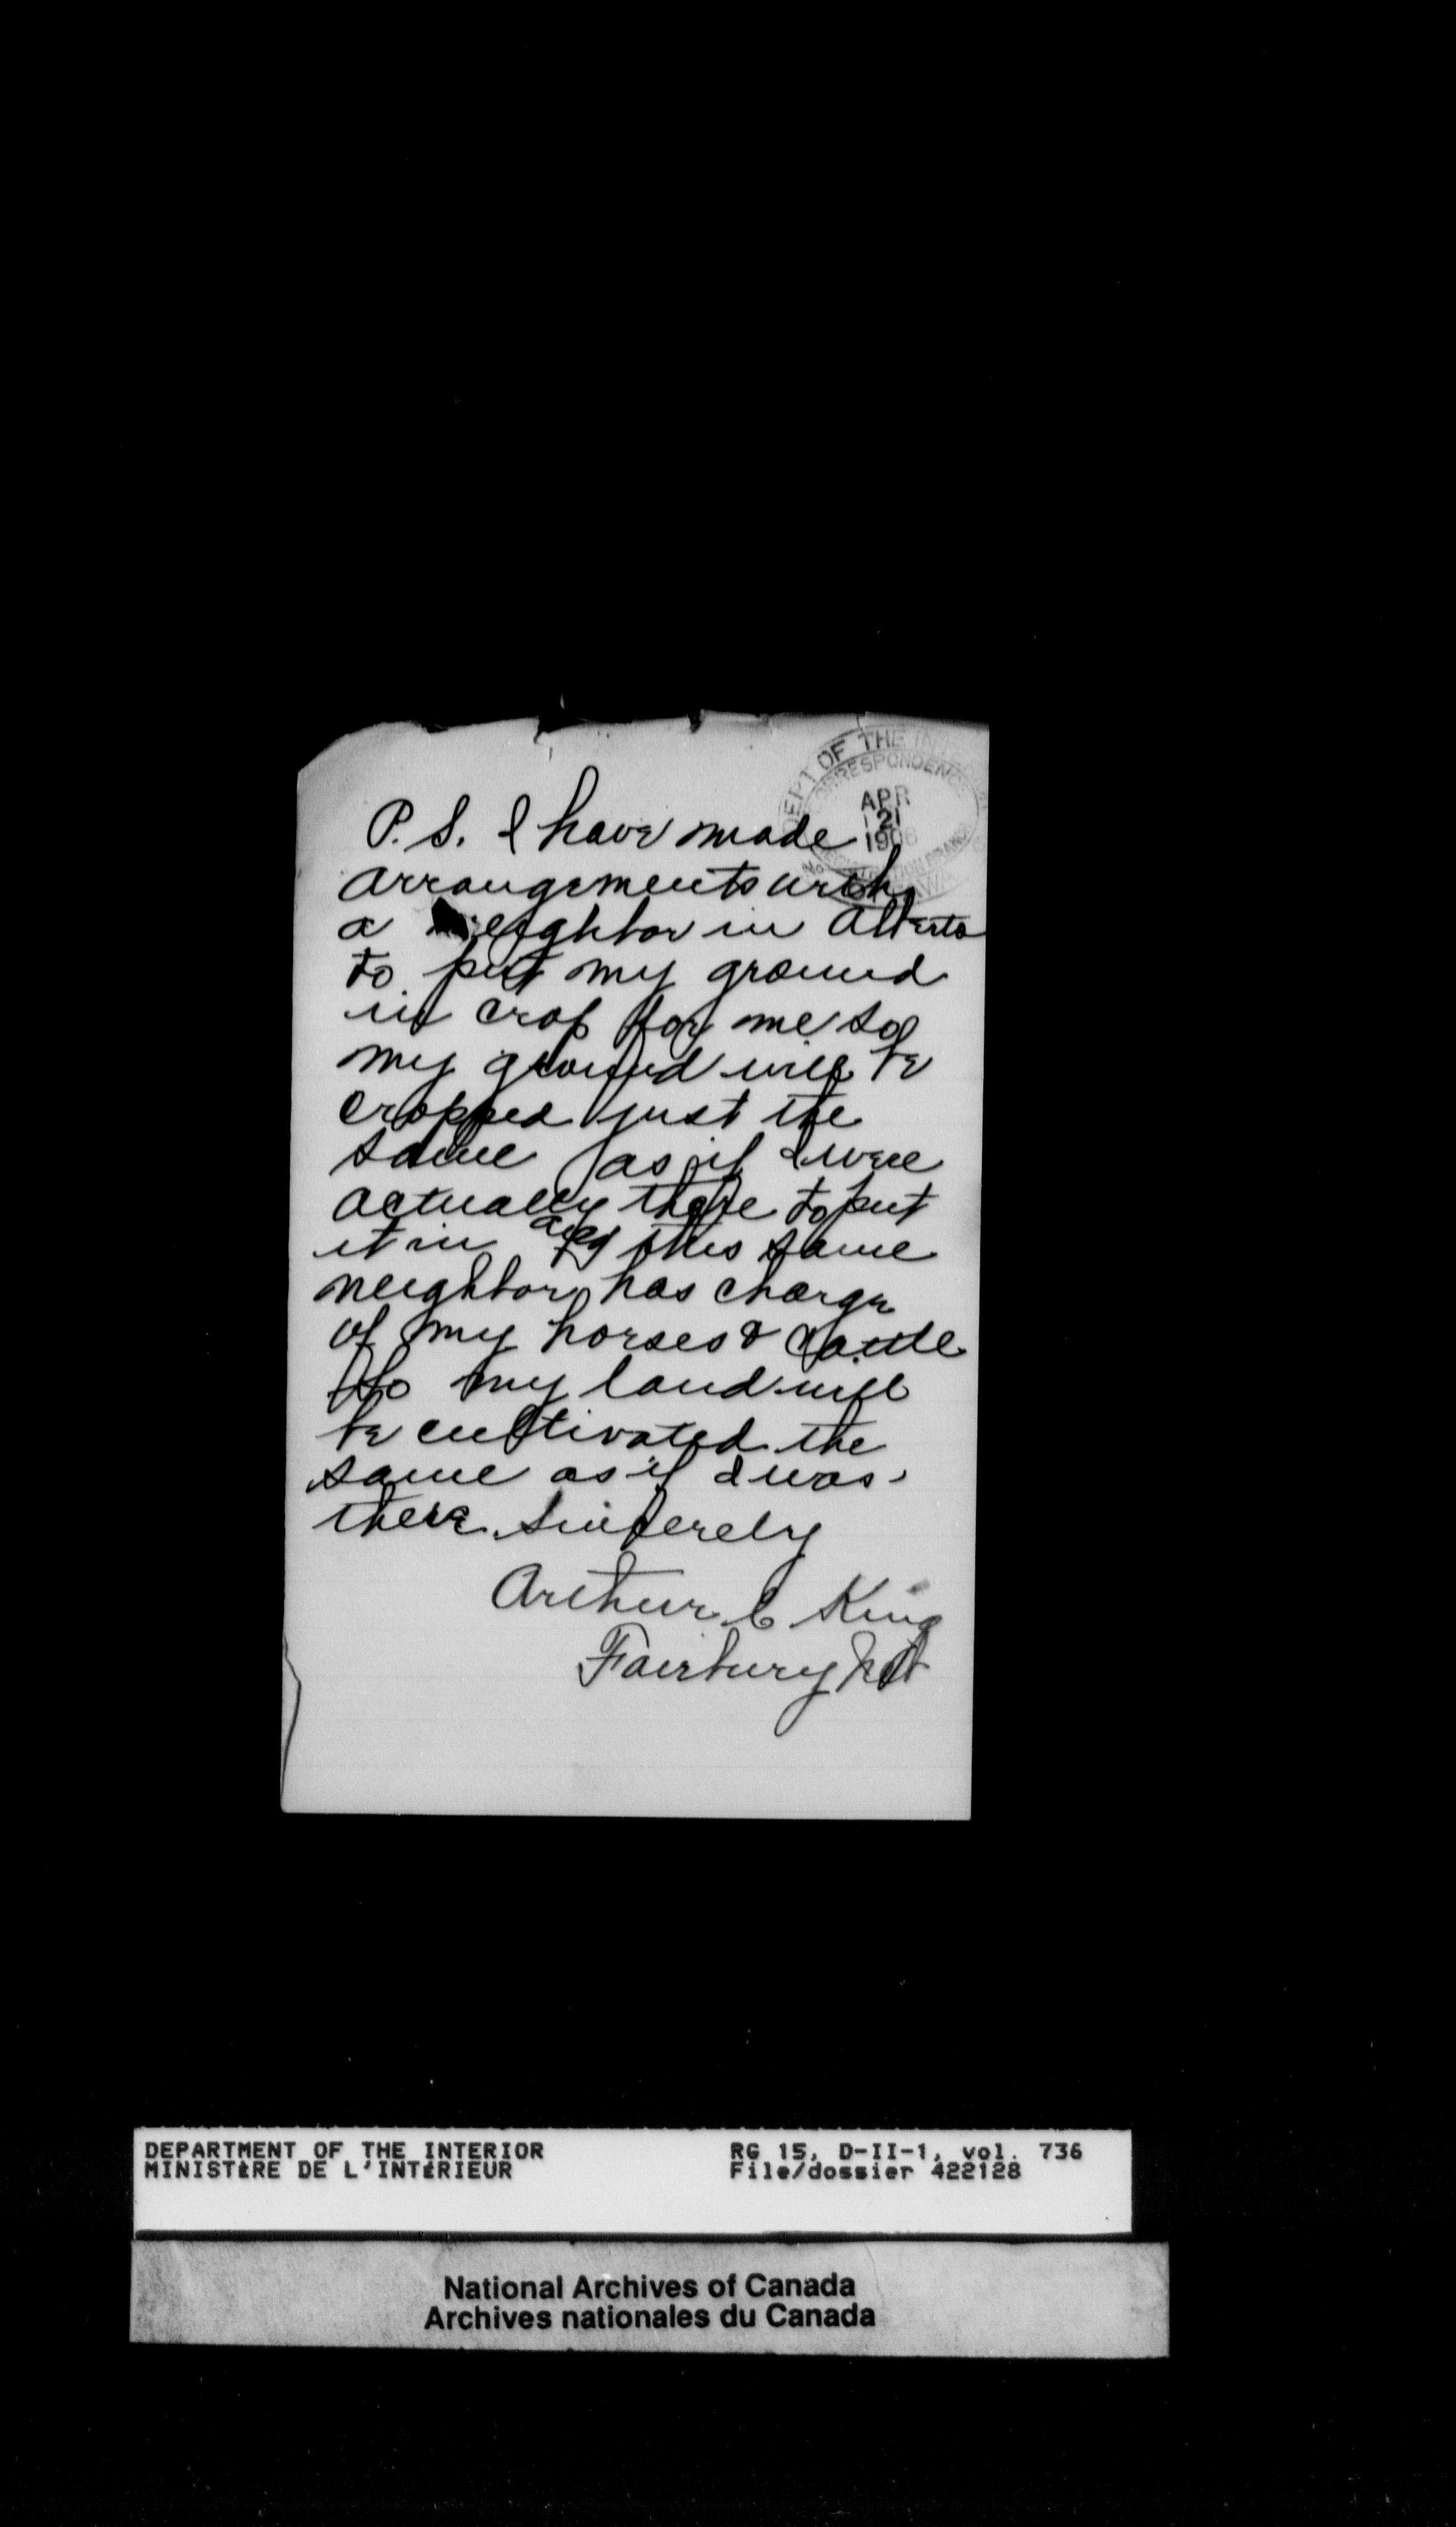 DEPT OF THE INTERIOR
CORRESPONDENCE
APR
21
1906
REGISTRATION BRANCH
P.S. I have made
arrangements with
a neighbor in Alberta
to put my ground
in crop for me so
my ground will be
cropped just the
same as if I were
actually there to put
it in and this same
neighbor has charge
of my horses & cattle
So my land will
be cultivated the
same as if I was
there. Sincerely
Arthur C King
Fairbury Neb
DEPARTMENT OF THE INTERIOR
MINISTÈRE DE L'INTÉRIEUR
RG 15, D-II-1, vol. 736
File/dossier 422128
National Archives of Canada
Archives nationales du Canada